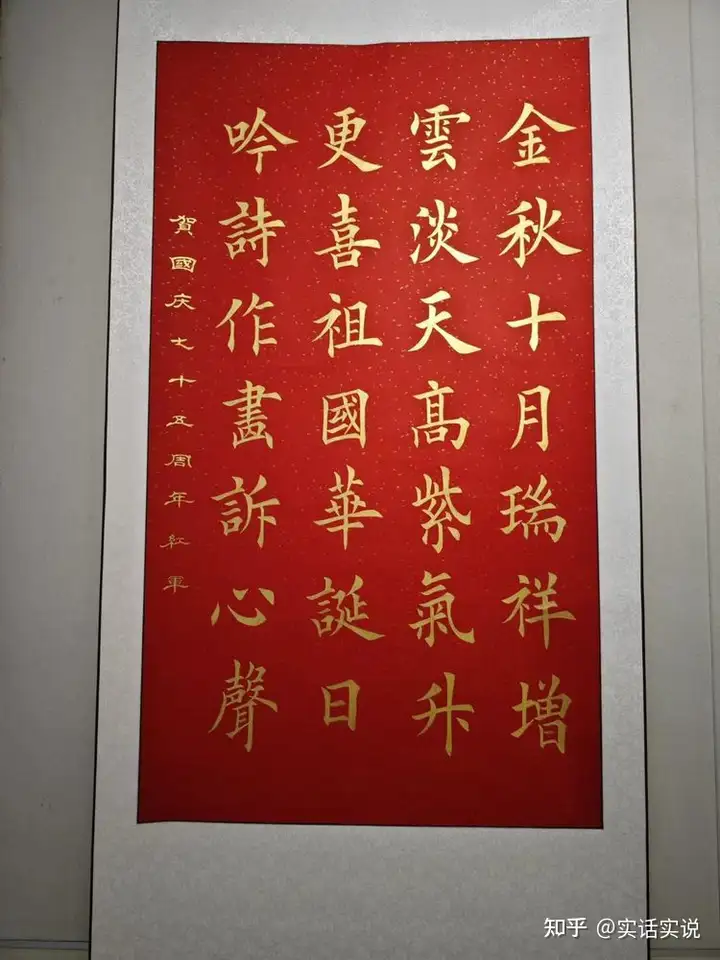 金秋十月瑞祥增
雲淡天高紫氣升
更喜祖國華誕日
吟詩作畫訴心聲
賀國庆七十五周年紅軍
知乎 @实话实说